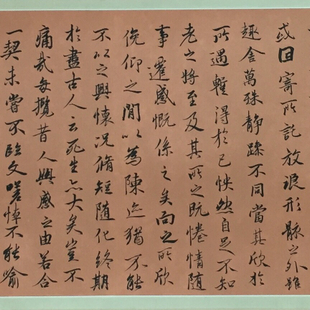 或因寄所託放浪形骸之外雖
趣舍萬殊靜躁不同當其欣於
所遇暫得於己怏然自足不知
老之將至及其所之既惓情隨
事遷感慨係之矣向之所欣
俛仰之間以為陳迹猶不能
不以之興懷況脩短隨化終期
於盡古人云死生亦大矣豈不
痛哉每攬昔人興感之由若合
一契未嘗不臨文嗟悼不能喻